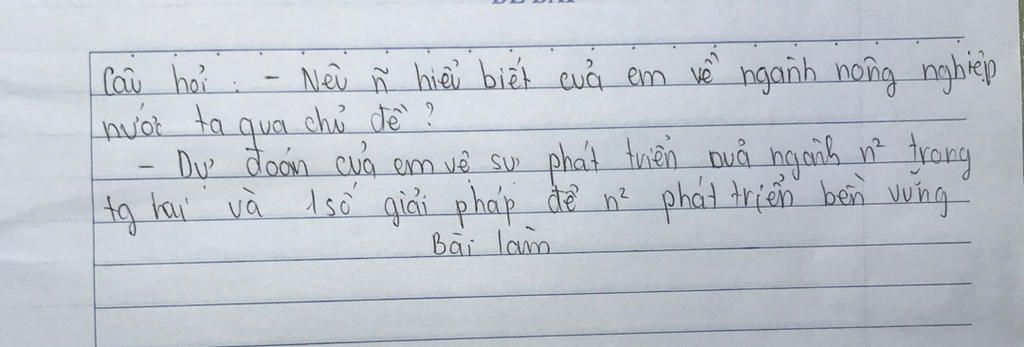 ĐỀ BÀI
Câu hỏi : - Nêu ñ hiểu biết của em về ngành nông nghiệp
nước ta qua chủ đề ?
- Dự đoán của em về sự phát triển của ngành n² trong
tg lai và 1 số giải pháp để n² phát triển bền vững
Bài làm